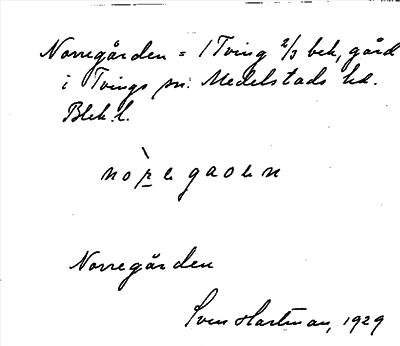 Norregården = 1 Tving 2/3 bek, gård
i Tvings sn: Medelstads hd.
Blek. l.
nò̱re gaoen
Norregården
Sven Hartman, 1929